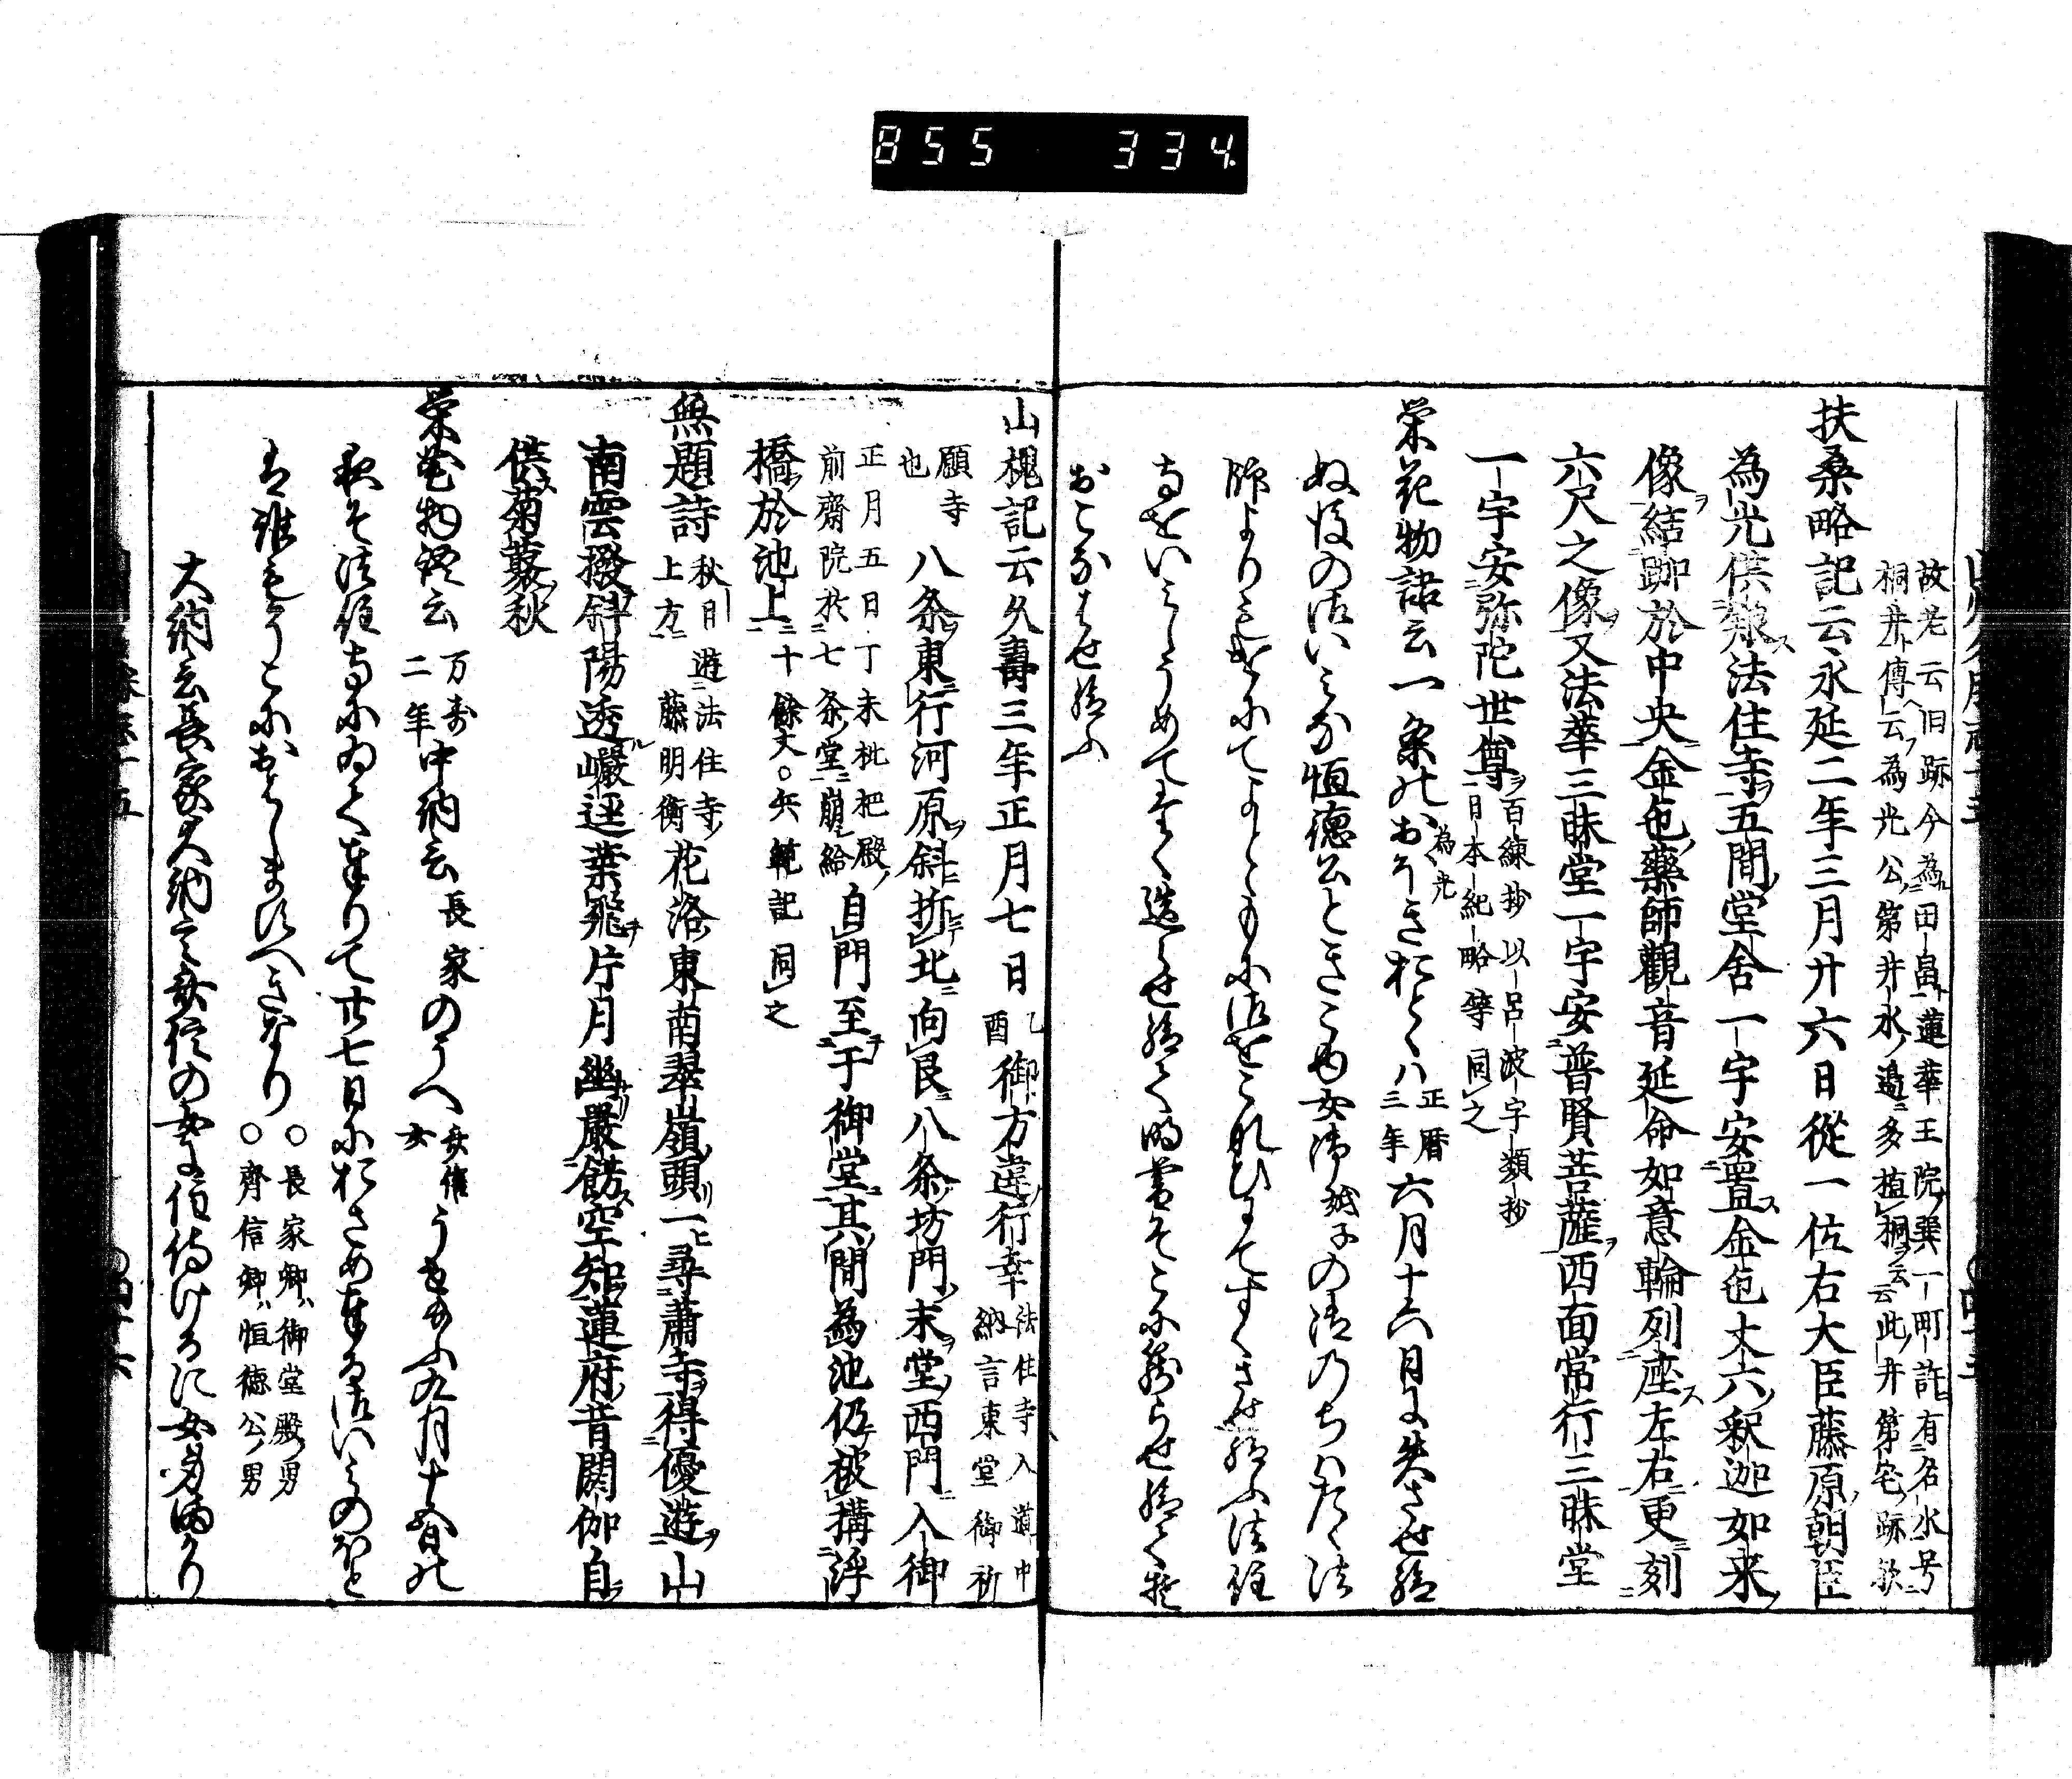 855 334
故老云旧跡今為田畠蓮華王院巽一町許有名水号
桐井傳云為光公第井水邊多植桐云云此井第宅跡歟
扶桑略記云永延二年三月廿六日從一位右大臣藤原朝臣
為光供養法住寺五間堂舎一宇安置金色丈六釈迦如来
像結跏於中央金色藥師觀音延命如意輪列座左右更刻
六尺之像又法華三昧堂一宇安普賢菩薩西面常行三昧堂
一宇安弥陀世尊百練抄以呂波字類抄日本紀略等同之
栄花物語云一条のおほきおとゝ為光ハ正暦三年六月十六日に失させ給
ぬ後の御いみな恒徳公ときこゆ女御忯子の御のちハたゝ法
師よりもけにてよとともに御をこなひにてすくさせ給ふ法住
寺をいみしうめてたく造らせ給て明暮そこに籠らせ給てそ
おこなはせ給ふ
山槐記云久壽三年正月七日乙酉御方違行幸法住寺入道中納言東堂御祈
願寺也八条東行河原斜折北向艮八条坊門末堂西門入御
正月五日丁未枇杷殿前齋院於七条堂崩給自門至于御堂其間為池仍被構浮
橋於池上三十餘丈○兵範記同之
無題詩秋日遊法住寺上方藤明衡花洛東南翠嶺頭一尋蕭寺得優遊山
南雲撥斜陽透巖逕葉飛片月幽嚴餝空知蓮府昔閼伽自
供菊藂秋
栄花物語云万寿二年中納言長家のうへ女うせ給ふ九月十五日の
夜そ法住寺にゐて奉りて廿七日におさめ奉る御いみのほと
は誰もうこにおはしますへきなり○長家卿ハ御堂殿男○齊信卿ハ恒徳公男
大納言長家大納言齊信の女に住侍けるに女身まかり